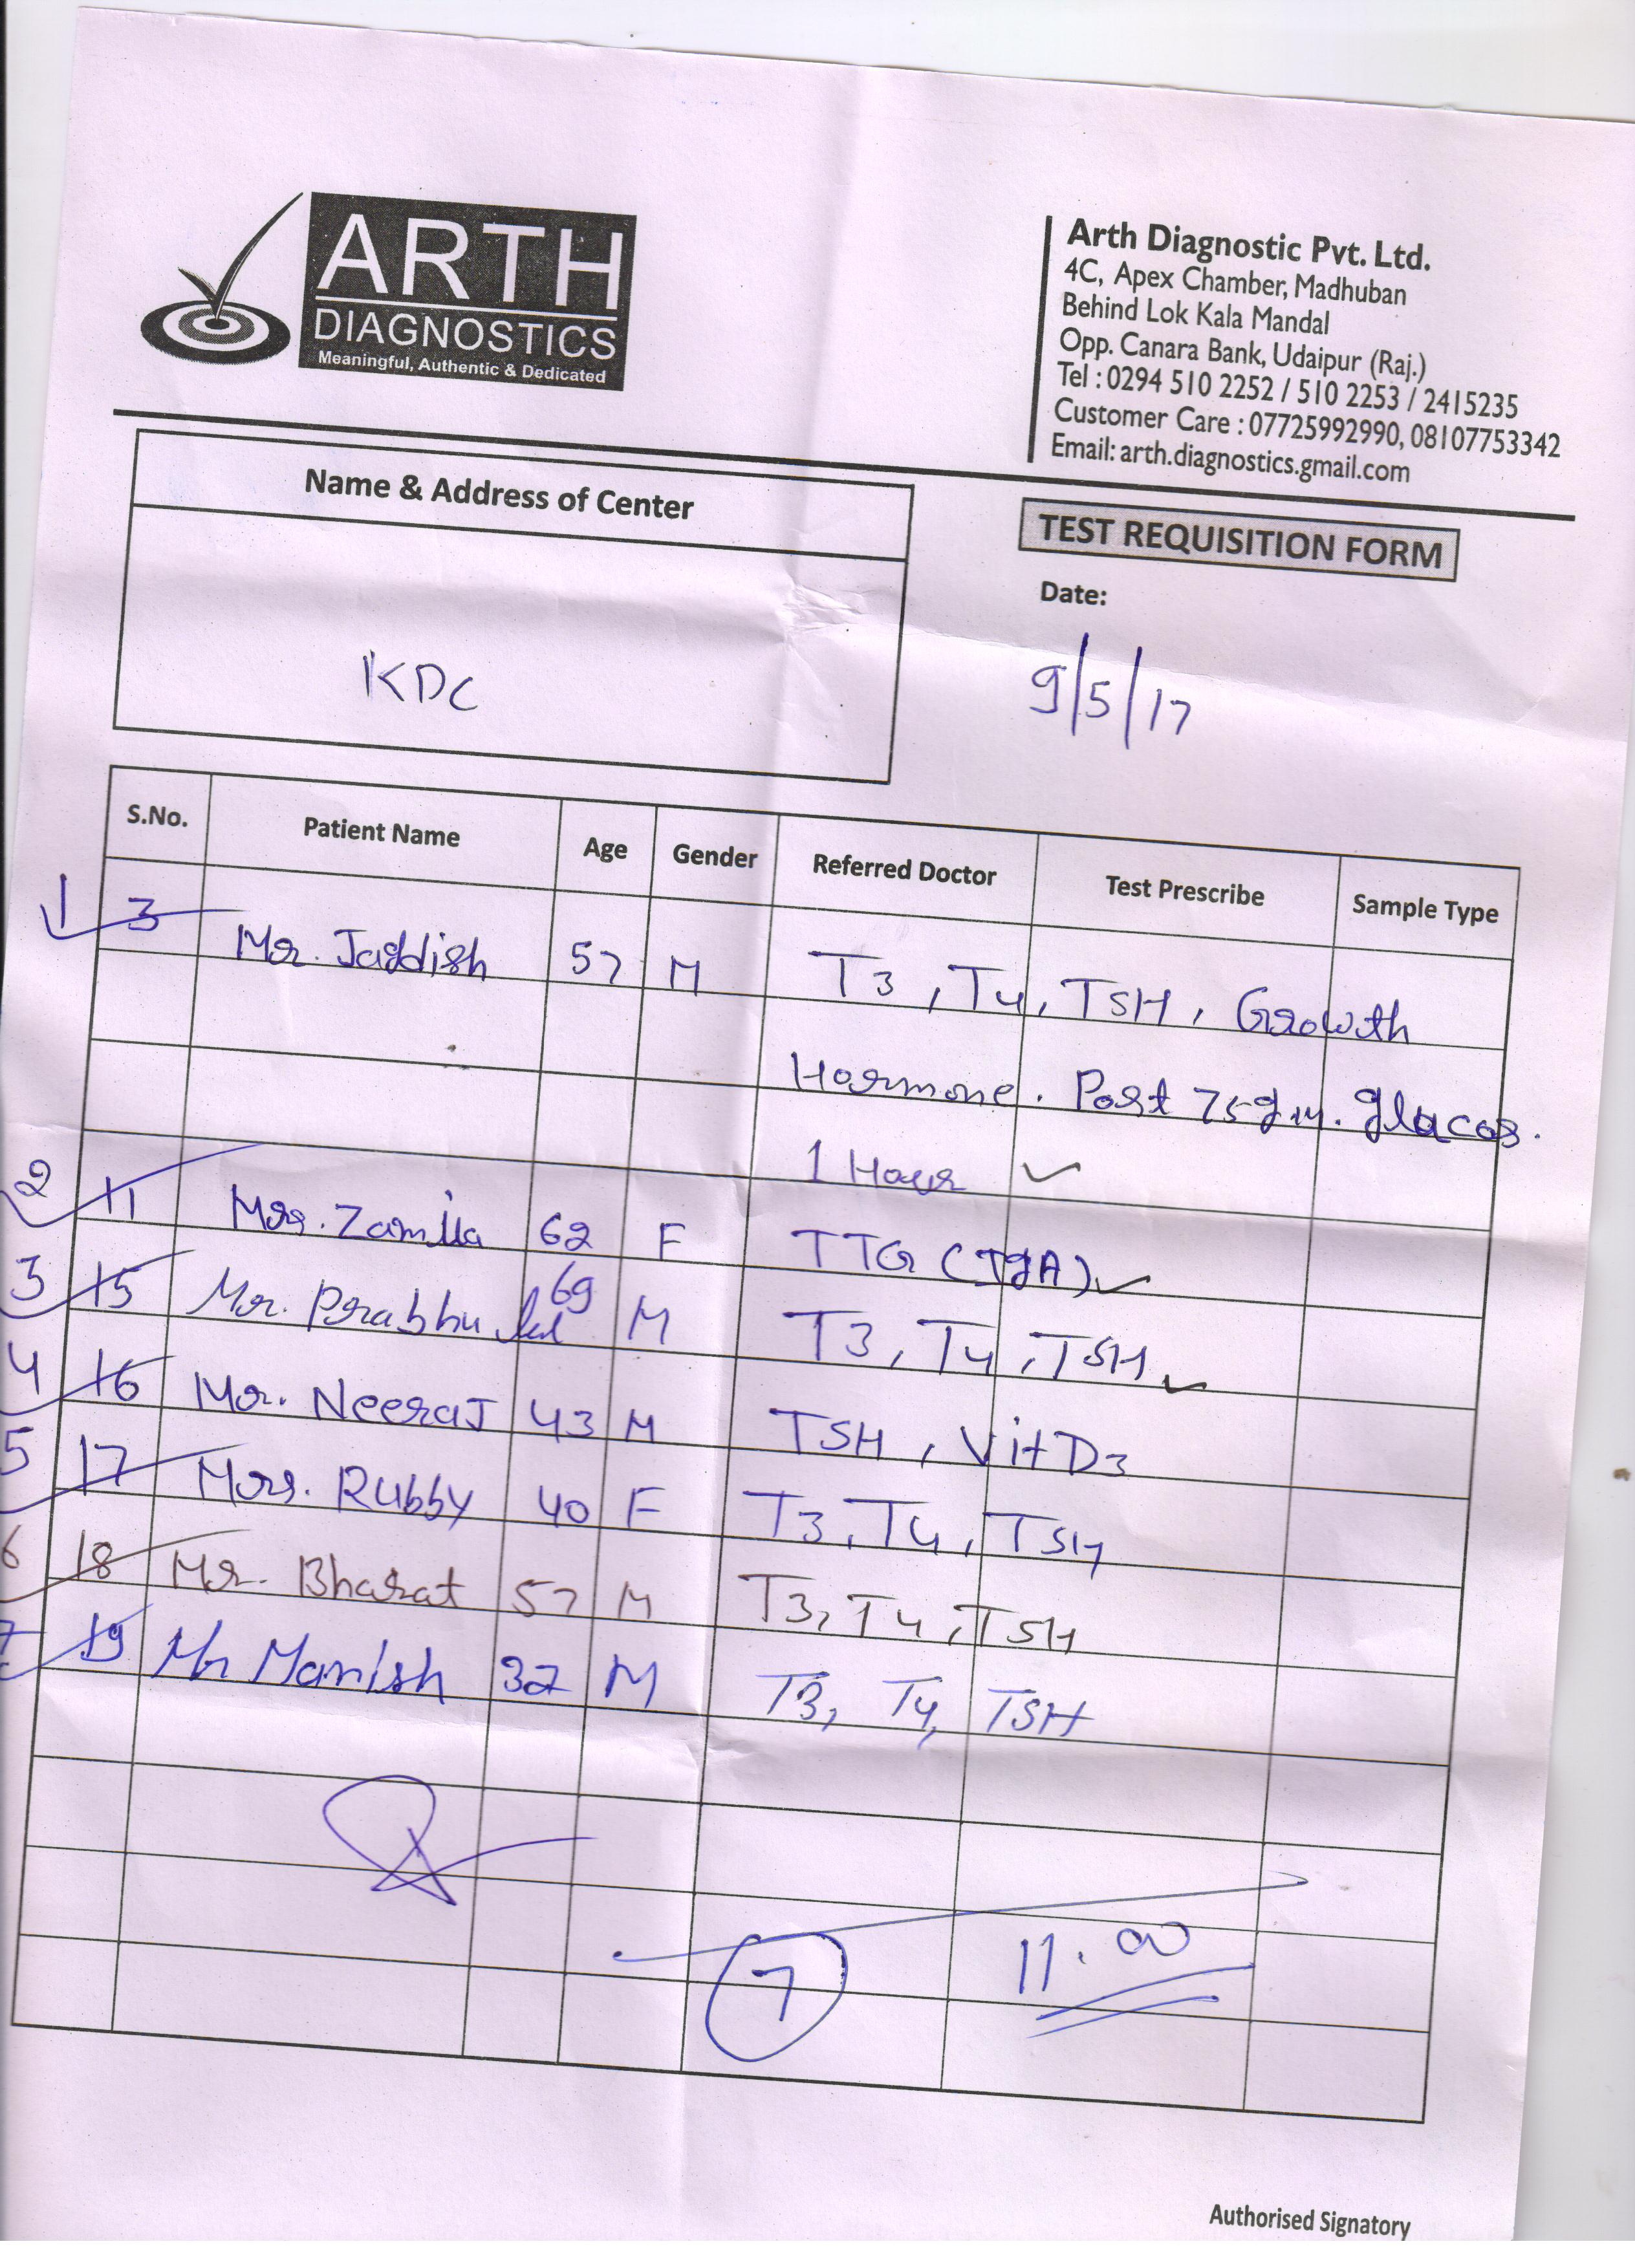 ARTH
DIAGNOSTICS
Meaningful, Authentic & Dedicated
Arth Diagnostic Pvt. Ltd.
4C, Apex Chamber, Madhuban
Behind Lok Kala Mandal
Opp. Canara Bank, Udaipur (Raj.)
Tel : 0294 510 2252 / 510 2253 / 2415235
Customer Care : 07725992990, 08107753342
Email: arth.diagnostics.gmail.com
Name & Address of Center
KDC
TEST REQUISITION FORM
Date:
9/5/17
S.No. Patient Name Age Gender Referred Doctor Test Prescribe Sample Type
1 3 Mr. Jagdish 57 M T3, T4, TSH, Growth
Hormone. Post 75gm. glucos.
1 Hour
2 11 Mrs. Zamila 62 F TTG (IgA)
3 15 Mr. Prabhu lal 69 M T3, T4, TSH
4 16 Mr. Neeraj 43 M TSH, Vit D3
5 17 Mrs. Rubby 40 F T3, T4, TSH
6 18 Mr. Bharat 57 M T3, T4, TSH
7 19 Mr Manish 32 M T3, T4, TSH
7 11.00
Authorised Signatory